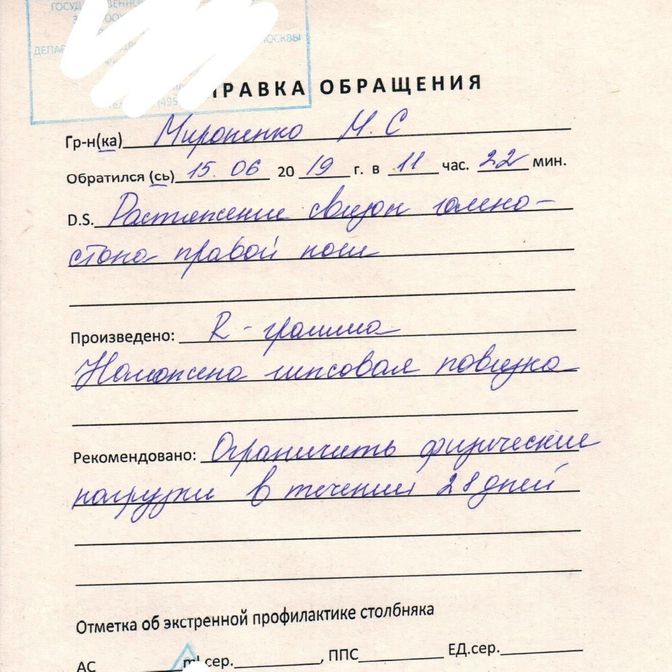 ГОСУ
ДЕПАР
МОСКВЫ
(495)
ПРАВКА ОБРАЩЕНИЯ
Гр-н(ка) Мироненко М.С
Обратился (сь) 15.06 2019 г. в 11 час. 22 мин.
D.S. Растяжение связок голено-
стопа правой ноги
Произведено: R-грамма
Наложена гипсовая повязка
Рекомендовано: Ограничить физические
нагрузки в течении 21 дней
Отметка об экстренной профилактике столбняка
АС ml сер. , ППС ЕД.сер.